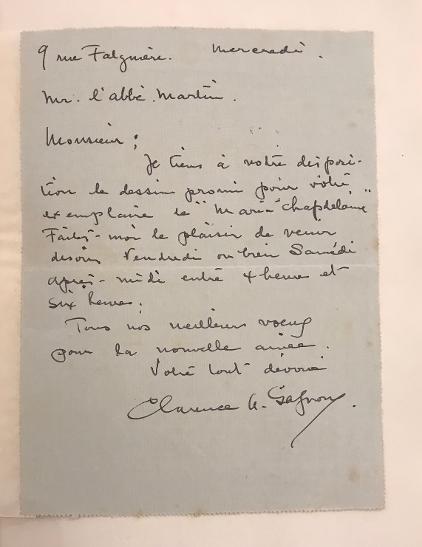 9 rue Falguière. Mercredi.
Mr. l'abbé Martin.
Monsieur;
Je tiens à votre disposi-
tion le dessin promis pour votre
exemplaire de "Maria Chapdelaine"
Faites-moi le plaisir de venir
Vendredi ou bien Samedi
après-midi entre 4 heures et
six heures.
Tous nos meilleurs voeux
pour la nouvelle année.
Votre tout dévoué
Clarence A. Gagnon.